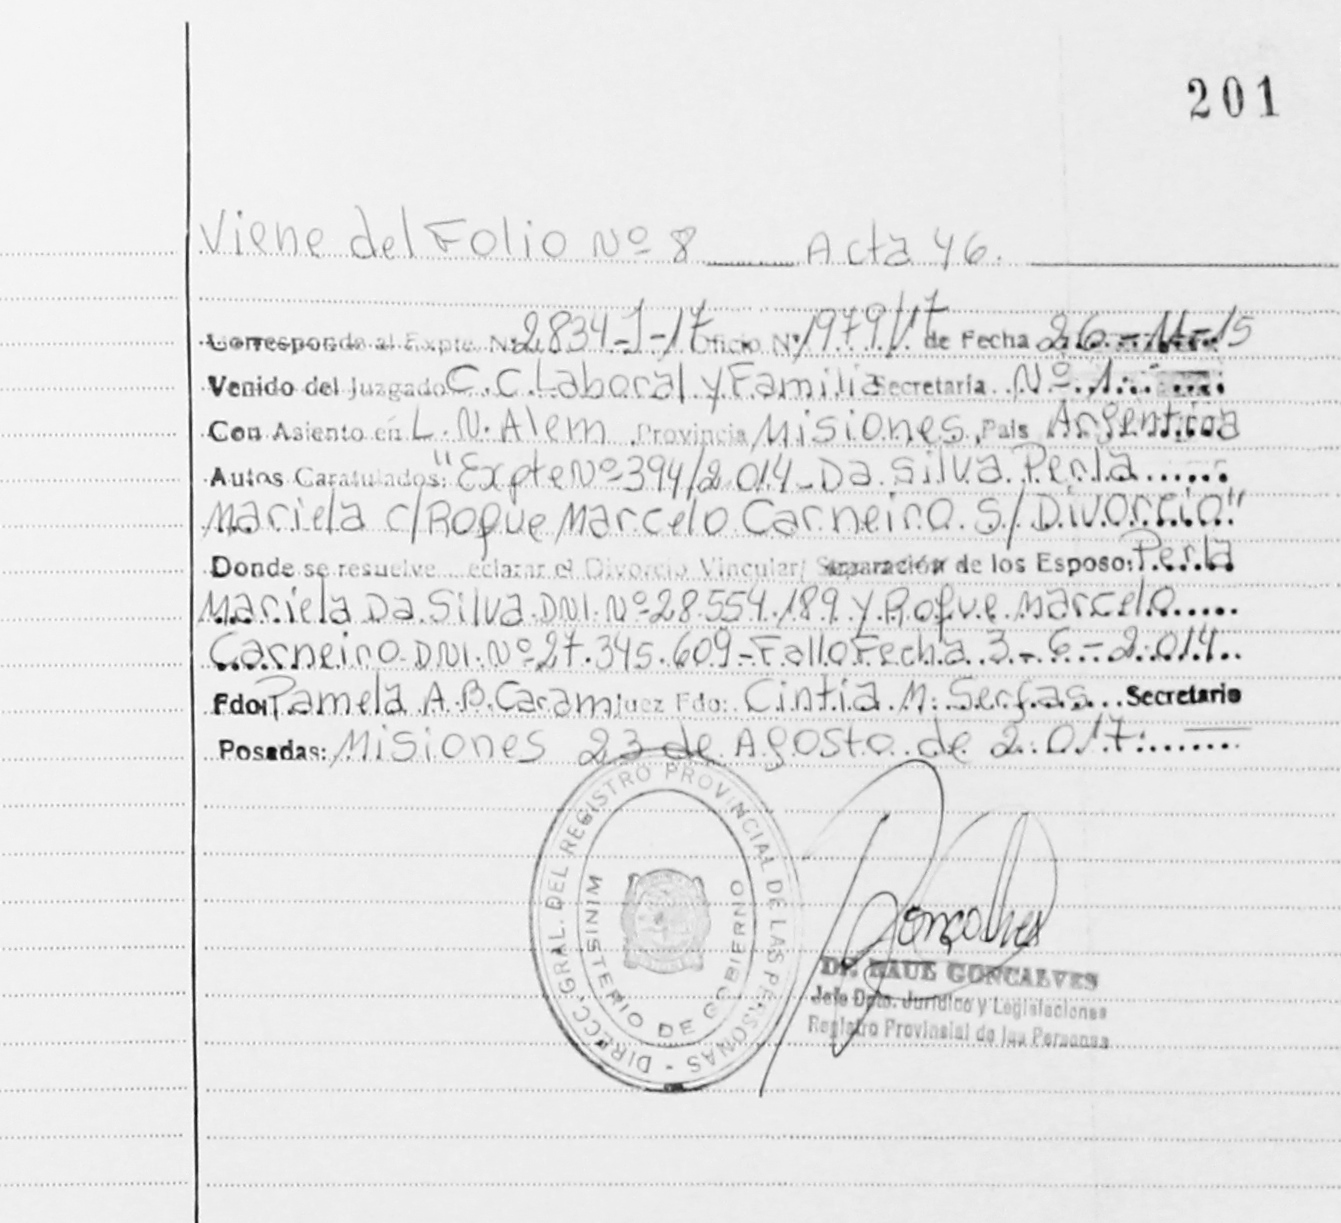 201
Viene del Folio Nº 8 Acta 46.
Corresponde al Expte. Nº 2834-J-17 Oficio Nº 1979/17 de Fecha 26-11-15
Venido del Juzgado C.C. Laboral y Familia Secretaria Nº 1
Con Asiento en L.N. Alem Provincia Misiones, Pais Argentina
Autos Caratulados: "Expte Nº 394/2.014 - Da Silva Perla
Mariela c/ Roque Marcelo Carneiro S/ Divorcio"
Donde se resuelve eclarar el Divorcio Vincular/ Separación de los Esposo: Perla
Mariela Da Silva DNI. Nº 28.554.189 y Roque Marcelo
Carneiro DNI. Nº 27.345.609 - Fallo Fecha 3 - 6 - 2.014
Fdo: Pamela A.B. Caram Juez Fdo: Cintia M. Secretario
Posadas: Misiones 23 de Agosto de 2.017
DIRECC. GRAL. DEL REGISTRO PROVINCIAL DE LAS PERSONAS -
MINISTERIO DE GOBIERNO
Goncalves
DR. RAUL GONCALVES
Jefe Dpto. Juridico y Legislaciones
Registro Provincial de las Personas